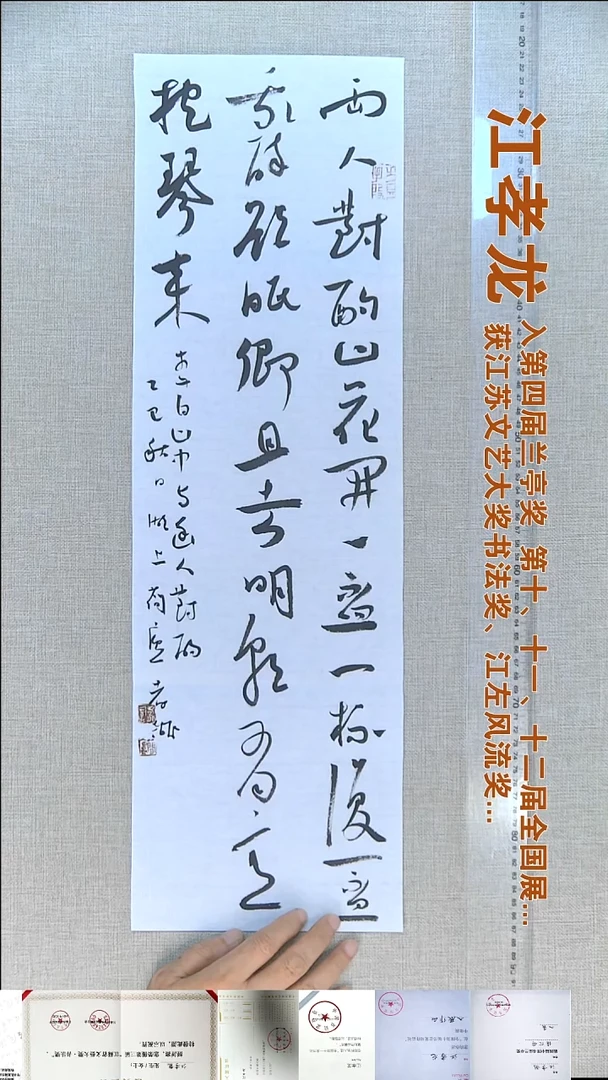 江孝龙
入第四届兰亭奖 第十、十一、十二届全国展...
获江苏文艺大奖书法奖、江左风流奖...
两人對酌山花開一盃一杯復一盃
我醉欲眠卿且去明朝有意
抱琴来
李白山中与幽人對酌
乙巳秋日湖上 孝龍